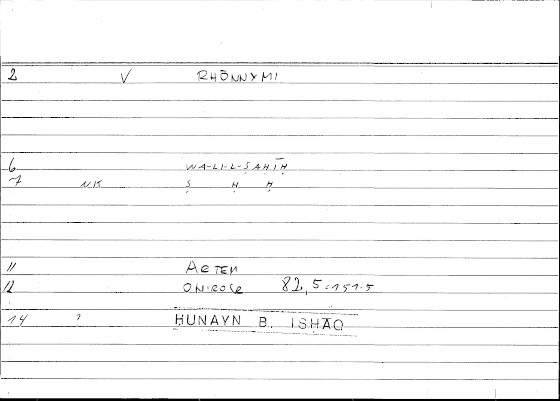 2 V RHŌNNYMI
6 WA-LI-L-ṢAḤĪḤ
7 NK Ṣ Ḥ Ḥ
11 ARTEM
12 ONIROCR 82,5 = 151.5
14 ? ḤUNAYN B. ISḤĀQ